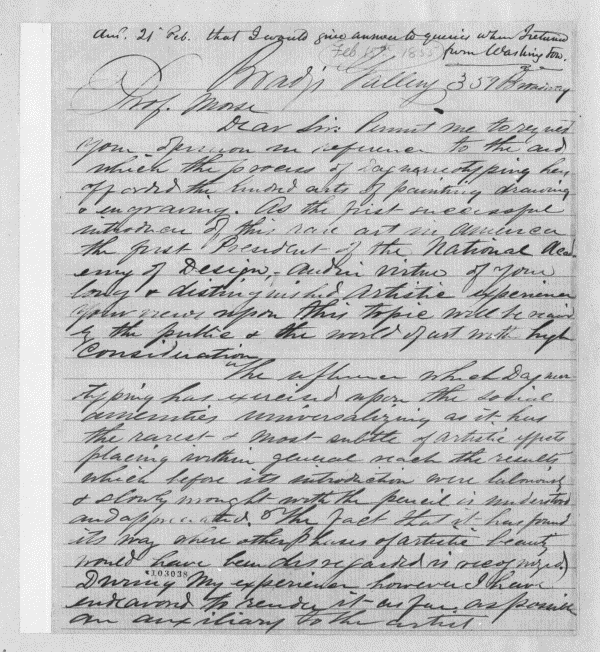 Ans. 21 Feb. that I would give answer to queries when I returned
from Washington.
(Feb 15th, 1855)
Brady's Gallery 359 Broadway
Prof. Morse
Dear Sir. Permit me to request
your opinion in reference to the aid
which the process of Daguerreotyping has
afforded the kindred arts of painting drawing
& engraving. As the first successful
introducer of this rare art in America
the first President of the National Acad
emy of Design, - and in virtue of your
long & distinguished artistic experience
your views upon this topic will be receiv
by the public & the world of art with high
consideration
The influence which Daguerr
typing has exercised upon the social
amenities universalizing as it has
the rarest & most subtle of artistic
placing within general reach the results
which before its introduction were laboriously
& slowly wrought with the pencil is understood
and appreciated. The fact that it has found
its way where other phases of artistic beauty
would have been disregarded is recognized
*103038
During my experience however I have
endeavord to render it as far as possible
an auxiliary to the artist